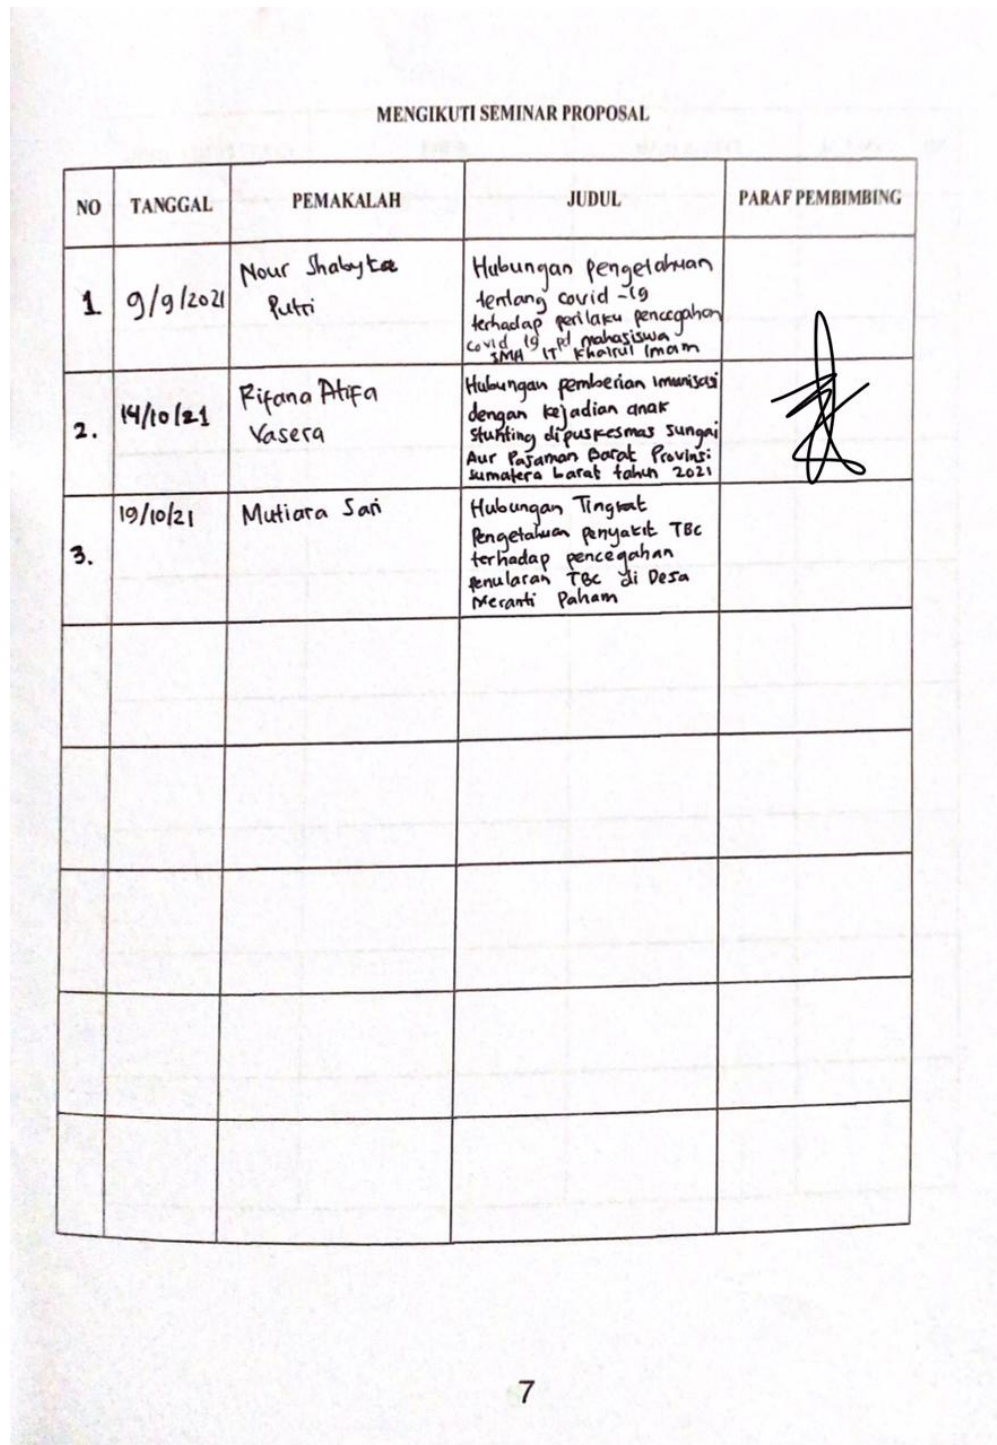 MENGIKUTI SEMINAR PROPOSAL
NO TANGGAL PEMAKALAH JUDUL PARAF PEMBIMBING
1. 9/9/2021
Nour Shabyta
Putri
Hubungan pengetahuan
tentang covid -19
terhadap perilaku pencegahan
covid 19 pd mahasiswa
SMA IT Khairul Imam
2. 14/10/21
Rifana Atifa
Vasera
Hubungan pemberian imunisasi
dengan kejadian anak
Stunting dipuskesmas Sungai
Aur Pasaman Barat Provinsi
Sumatera barat tahun 2021
3. 19/10/21
Mutiara Sari
Hubungan Tingkat
Pengetahuan penyakit TBC
terhadap pencegahan
penularan TBC di Desa
Meranti Paham
7